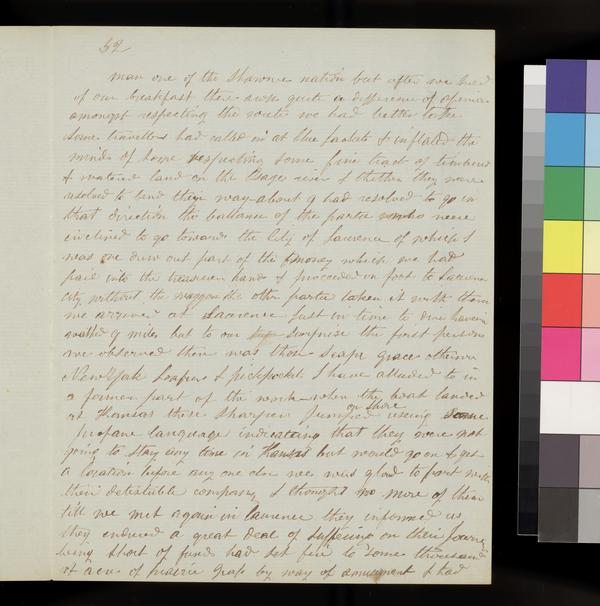 52
man one of the Shawnee nation but after we had
of our breakfast their arose quite a difference of opinion
amongst respecting the route we had better take
Some travellers had called in at blue Jackets & inflated the
minds of some respecting some fine tract of timbered
& watered land on the Osage river & thither they were
resolved to bend their way about 9 had resolved to go in
that direction the ballance of the partie who were
inclined to go towards the City of Laurence of which I
was one drew out part of the money which we had
paid into the treasurer hands & proceeded on foot to Laurence
City without the waggon the other partie taken it with them
we arrived at Laurence just in time to
walked 9 miles but to our surprise the first persons
we observed their was those scape grace otherwise
NewYork Loafers & pickpocket I have alluded to in
a former part of the work when the boat landed
at Kansas these sharpers jumped on shore useing some
profane language indicateing that they were not
going to stay any time in Kansas but would go on & get
a location before any one else we was glad to part with
their detestable company & thought no more of them
till we met again in Laurence they informed us
they endured a great deal of suffering on their Journey
being short of funds had set fire to some thousand
of acres of prairie grass by way of amusement & had